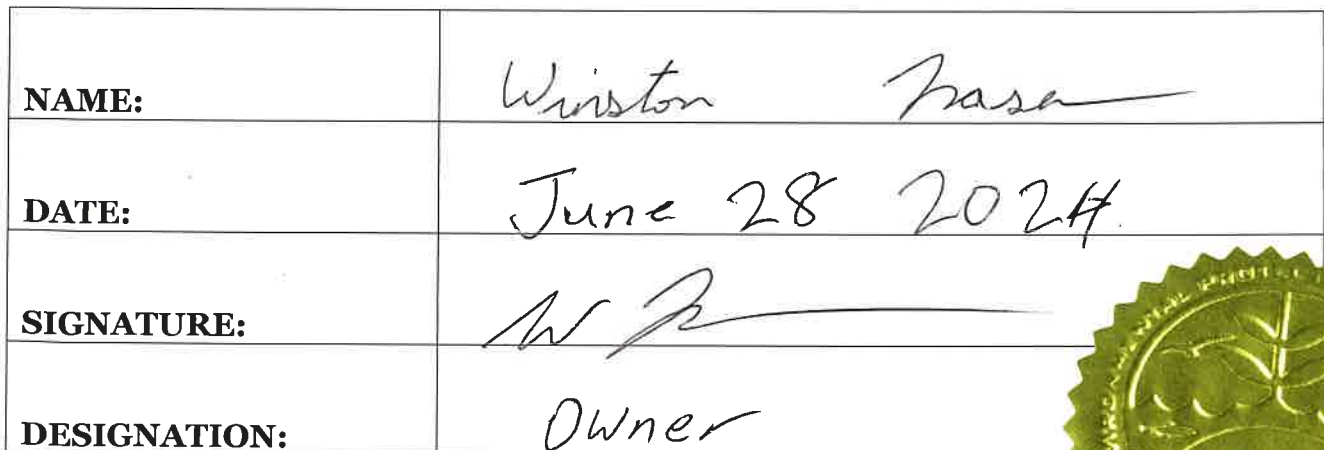 NAME: Winston
DATE: June 28 2024.
SIGNATURE: W
DESIGNATION: Owner